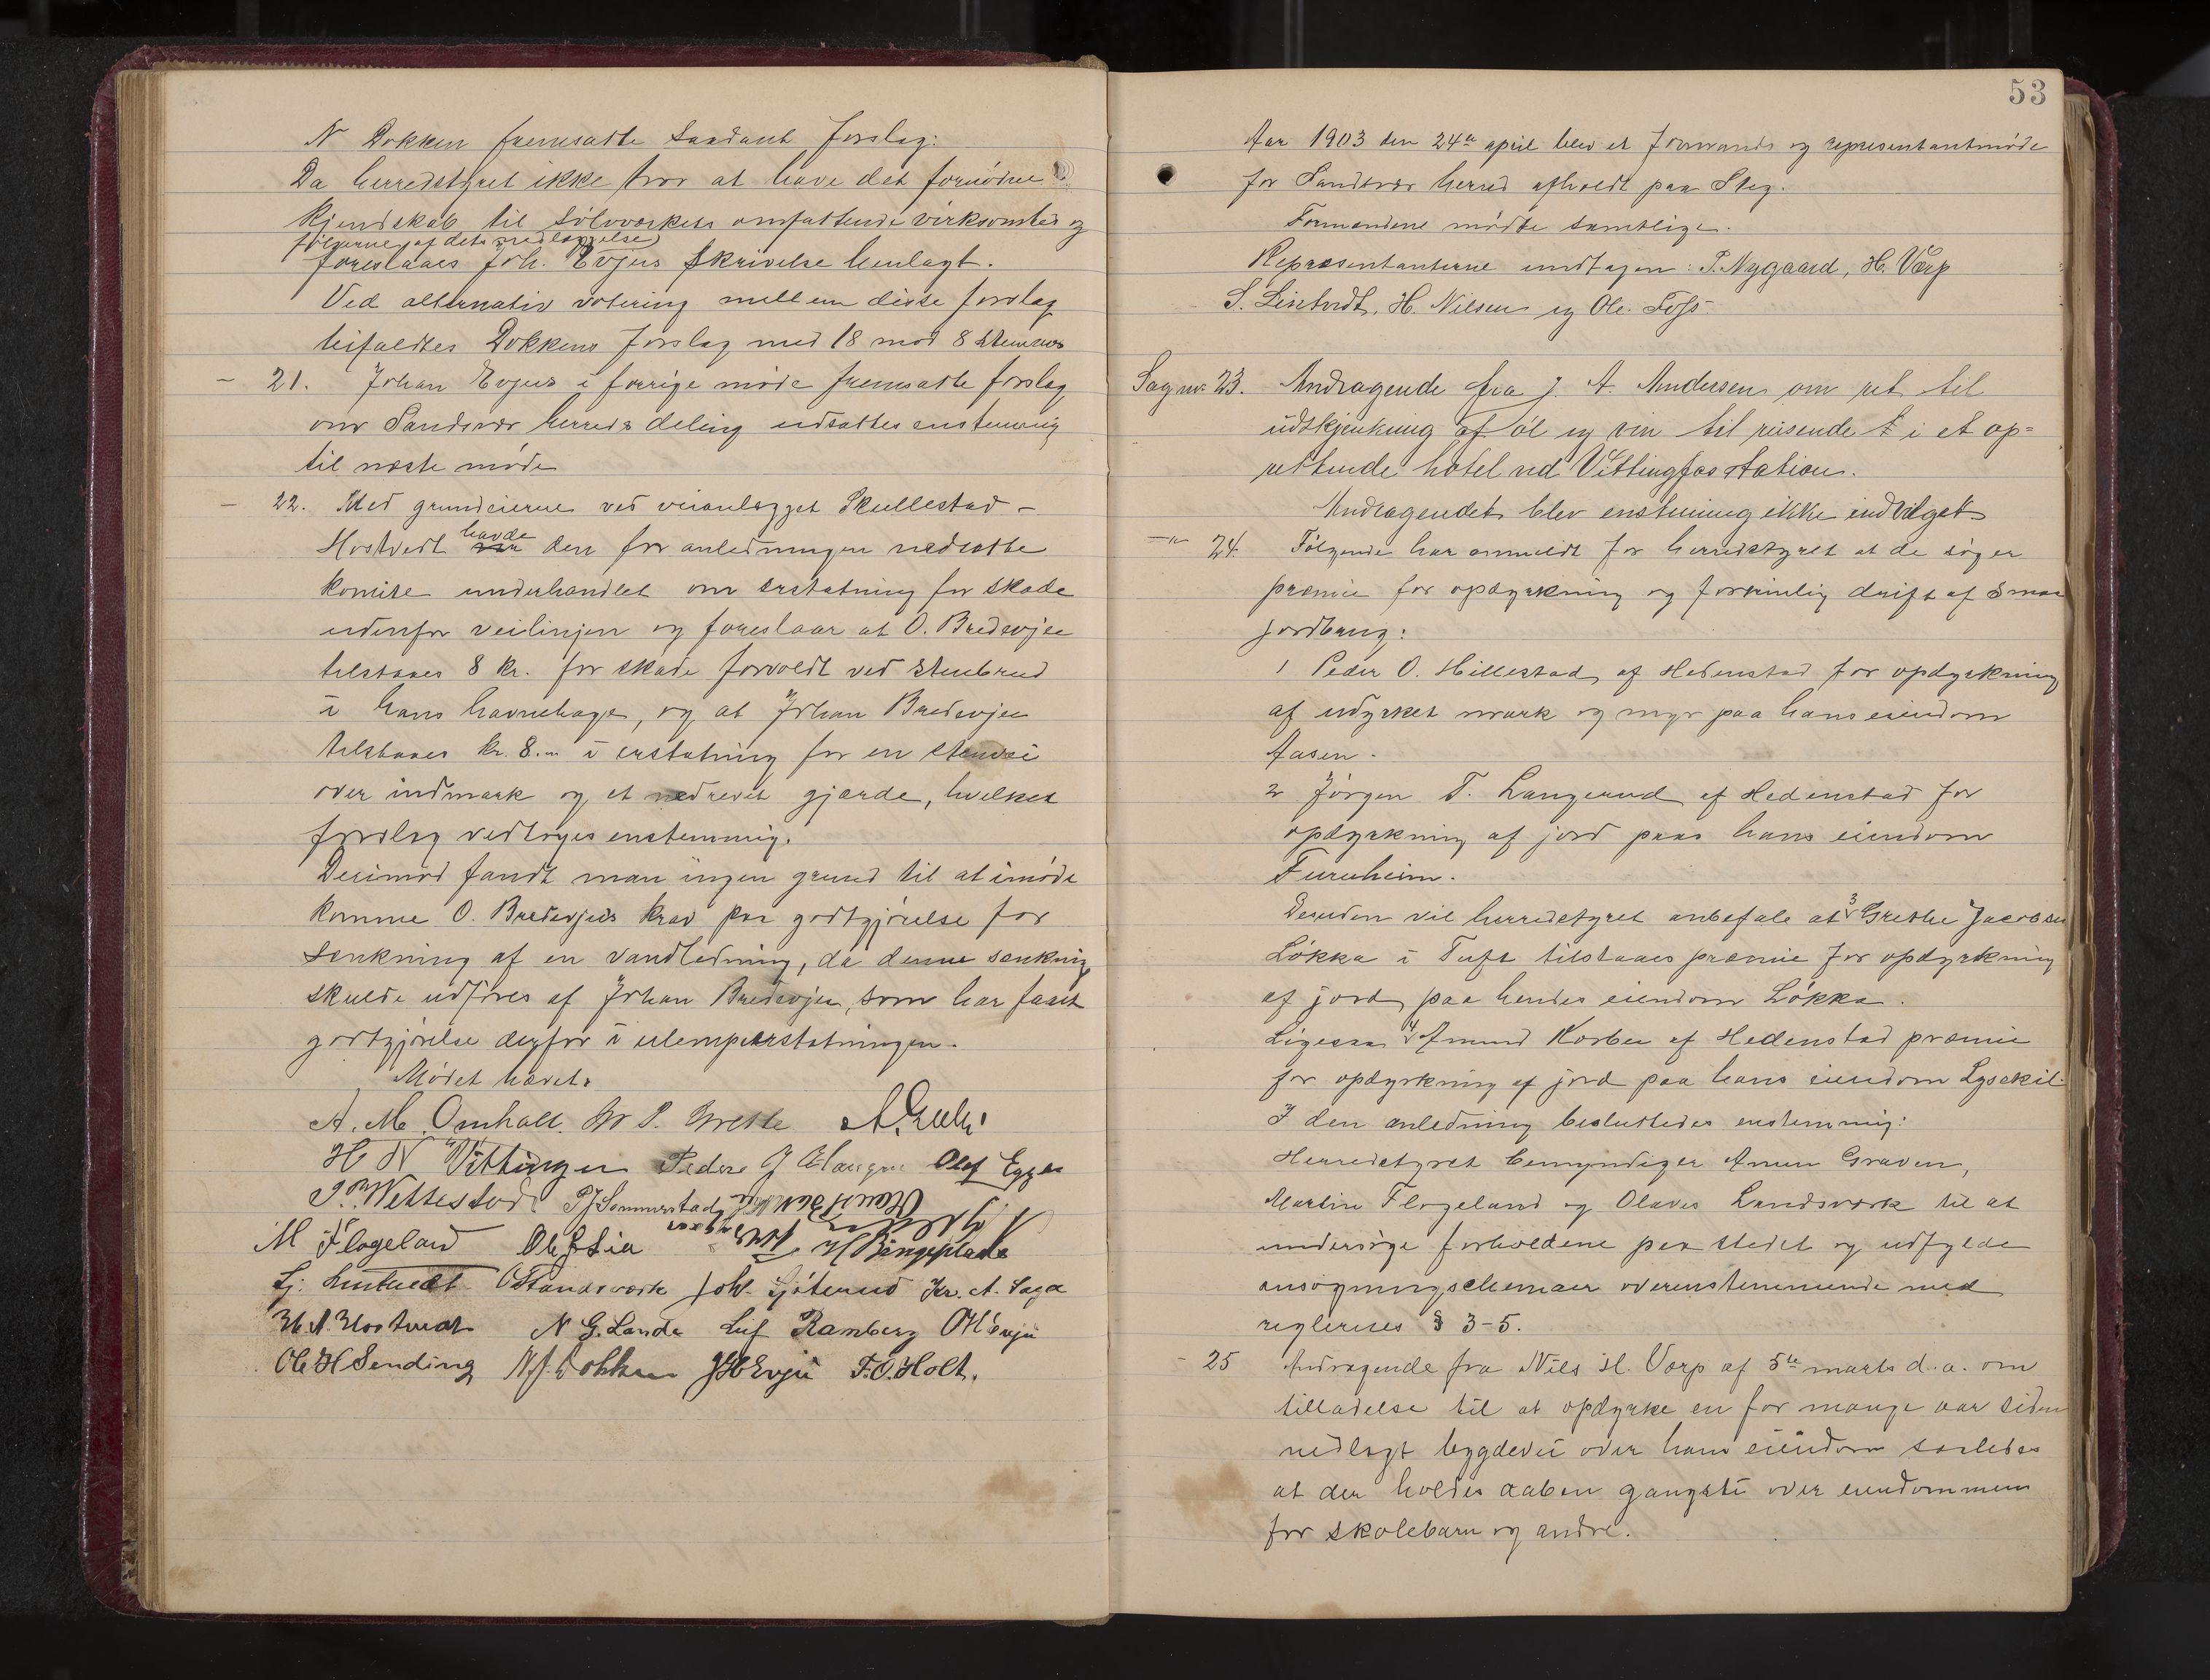 N Dokken fremsatte saadant forslag:
Da herredstyret ikke tror at have det fornødne
kjendskab til sølvverkets omfattende virksomhed og
følgerne af dets nedlæggelse
foreslaaes Joh. Evjus skrivelse henlagt.
Ved alternativ votering mellem disse forslag
bifaldtes Dokkens forslag med 18 mod 8 stemmer
- 21. Johan Evjus i forrige møde fremsatte forslag
om Sandsvær herreds deling udsattes enstemmig
til næste møde
- 22. Med grundeierne ved veianlægget Skullestad -
Hostvedt havde den for anledningen nedsatte
komite underhandlet om erstatning for skade
udenfor veilinjen og foreslaar at O. Bredevjen
tilstaaes 8 kr. for skade forvoldt ved stenbrud
i hans havnehage, og at Johan Bredevjen
tilstaaes kr. 8.- i erstatning for en stenvei
over indmark og et nedrevet gjærde, hvilket
forslag vedtoges enstemmig.
Derimod fandt man ingen grund til at imøde
komme O. Bredevjens krav paa godtgjørelse for
sænkning af en vandledning, da denne sænkning
skulde udføres af Johan Bredevjen, som har faaet
godtgjørelse derfor i ulempeerstatningen.
Mødet hævet.
A. M. Omholt.
H N Vittingen Peder G Olaf Egge
P. Wettestad P J Sommerstad
M Flogeland Ole J Lia H Bingeplads
Landsværk Joh. Kr. A. Saga
H. A. Hostvedt N G. Lande Leif Ramberg O H Evju
Ole H Sending N J. Dokken J H Evju T. O. Holt.
53
Aar 1903 den 24de april blev et formands og representantmøde
for Sandsvær herred afholdt paa Steg.
Formændene mødte samtlige.
Repræsentanterne undtagen: P. Nygaard, H. Værp
S. Lindtvedt, H. Nilsen og Ole Foss.
Sag nr. 23. Andragende fra J. A. Andersen om ret til
udskjænkning af øl og vin til reisende i et op=
rettende hotel ved Vittingfos station.
Andragendet blev enstemmig ikke indvilget
-"- 24. Følgende har anmeldt for herredstyret at de søger
præmie for opdyrkning og forsvinlig drift af smaa
jordbrug:
1 Peder O. Hillestad af Hedenstad for opdyrkning
af udyrket mark og myr paa hans eiendom
Aasen.
2 Jørgen T. Langerud af Hedenstad for
opdyrkning af jord paa hans eiendom
Furuheim.
Desuden vil herredstyret anbefale at 3 Grethe Jacobsen
Løkka i Tuft tilstaaes præmie for opdyrkning
af jord paa hendes eiendom Løkka.
Ligesaa 4 Amund Korbu af Hedenstad præmie
for opdyrkning af jord paa hans eiendom Lysekil.
I den anledning besluttedes enstemmig:
Herredstyret bemyndiger Anun Graven,
Martin Flogeland og Olaves Landsværk til at
undersøge forholdene paa stedet og udfylde
ansøgningschemaer overensstemmende med
reglernes § 3-5.
- 25 Andragende fra Nils H. Værp af 5te marts d.a. om
tilladelse til at opdyrke en for mange aar siden
nedlagt bygdevei over hans eiendom saaledes
at der holdes aaben gangsti over eiendommen
for skolebarn og andre.